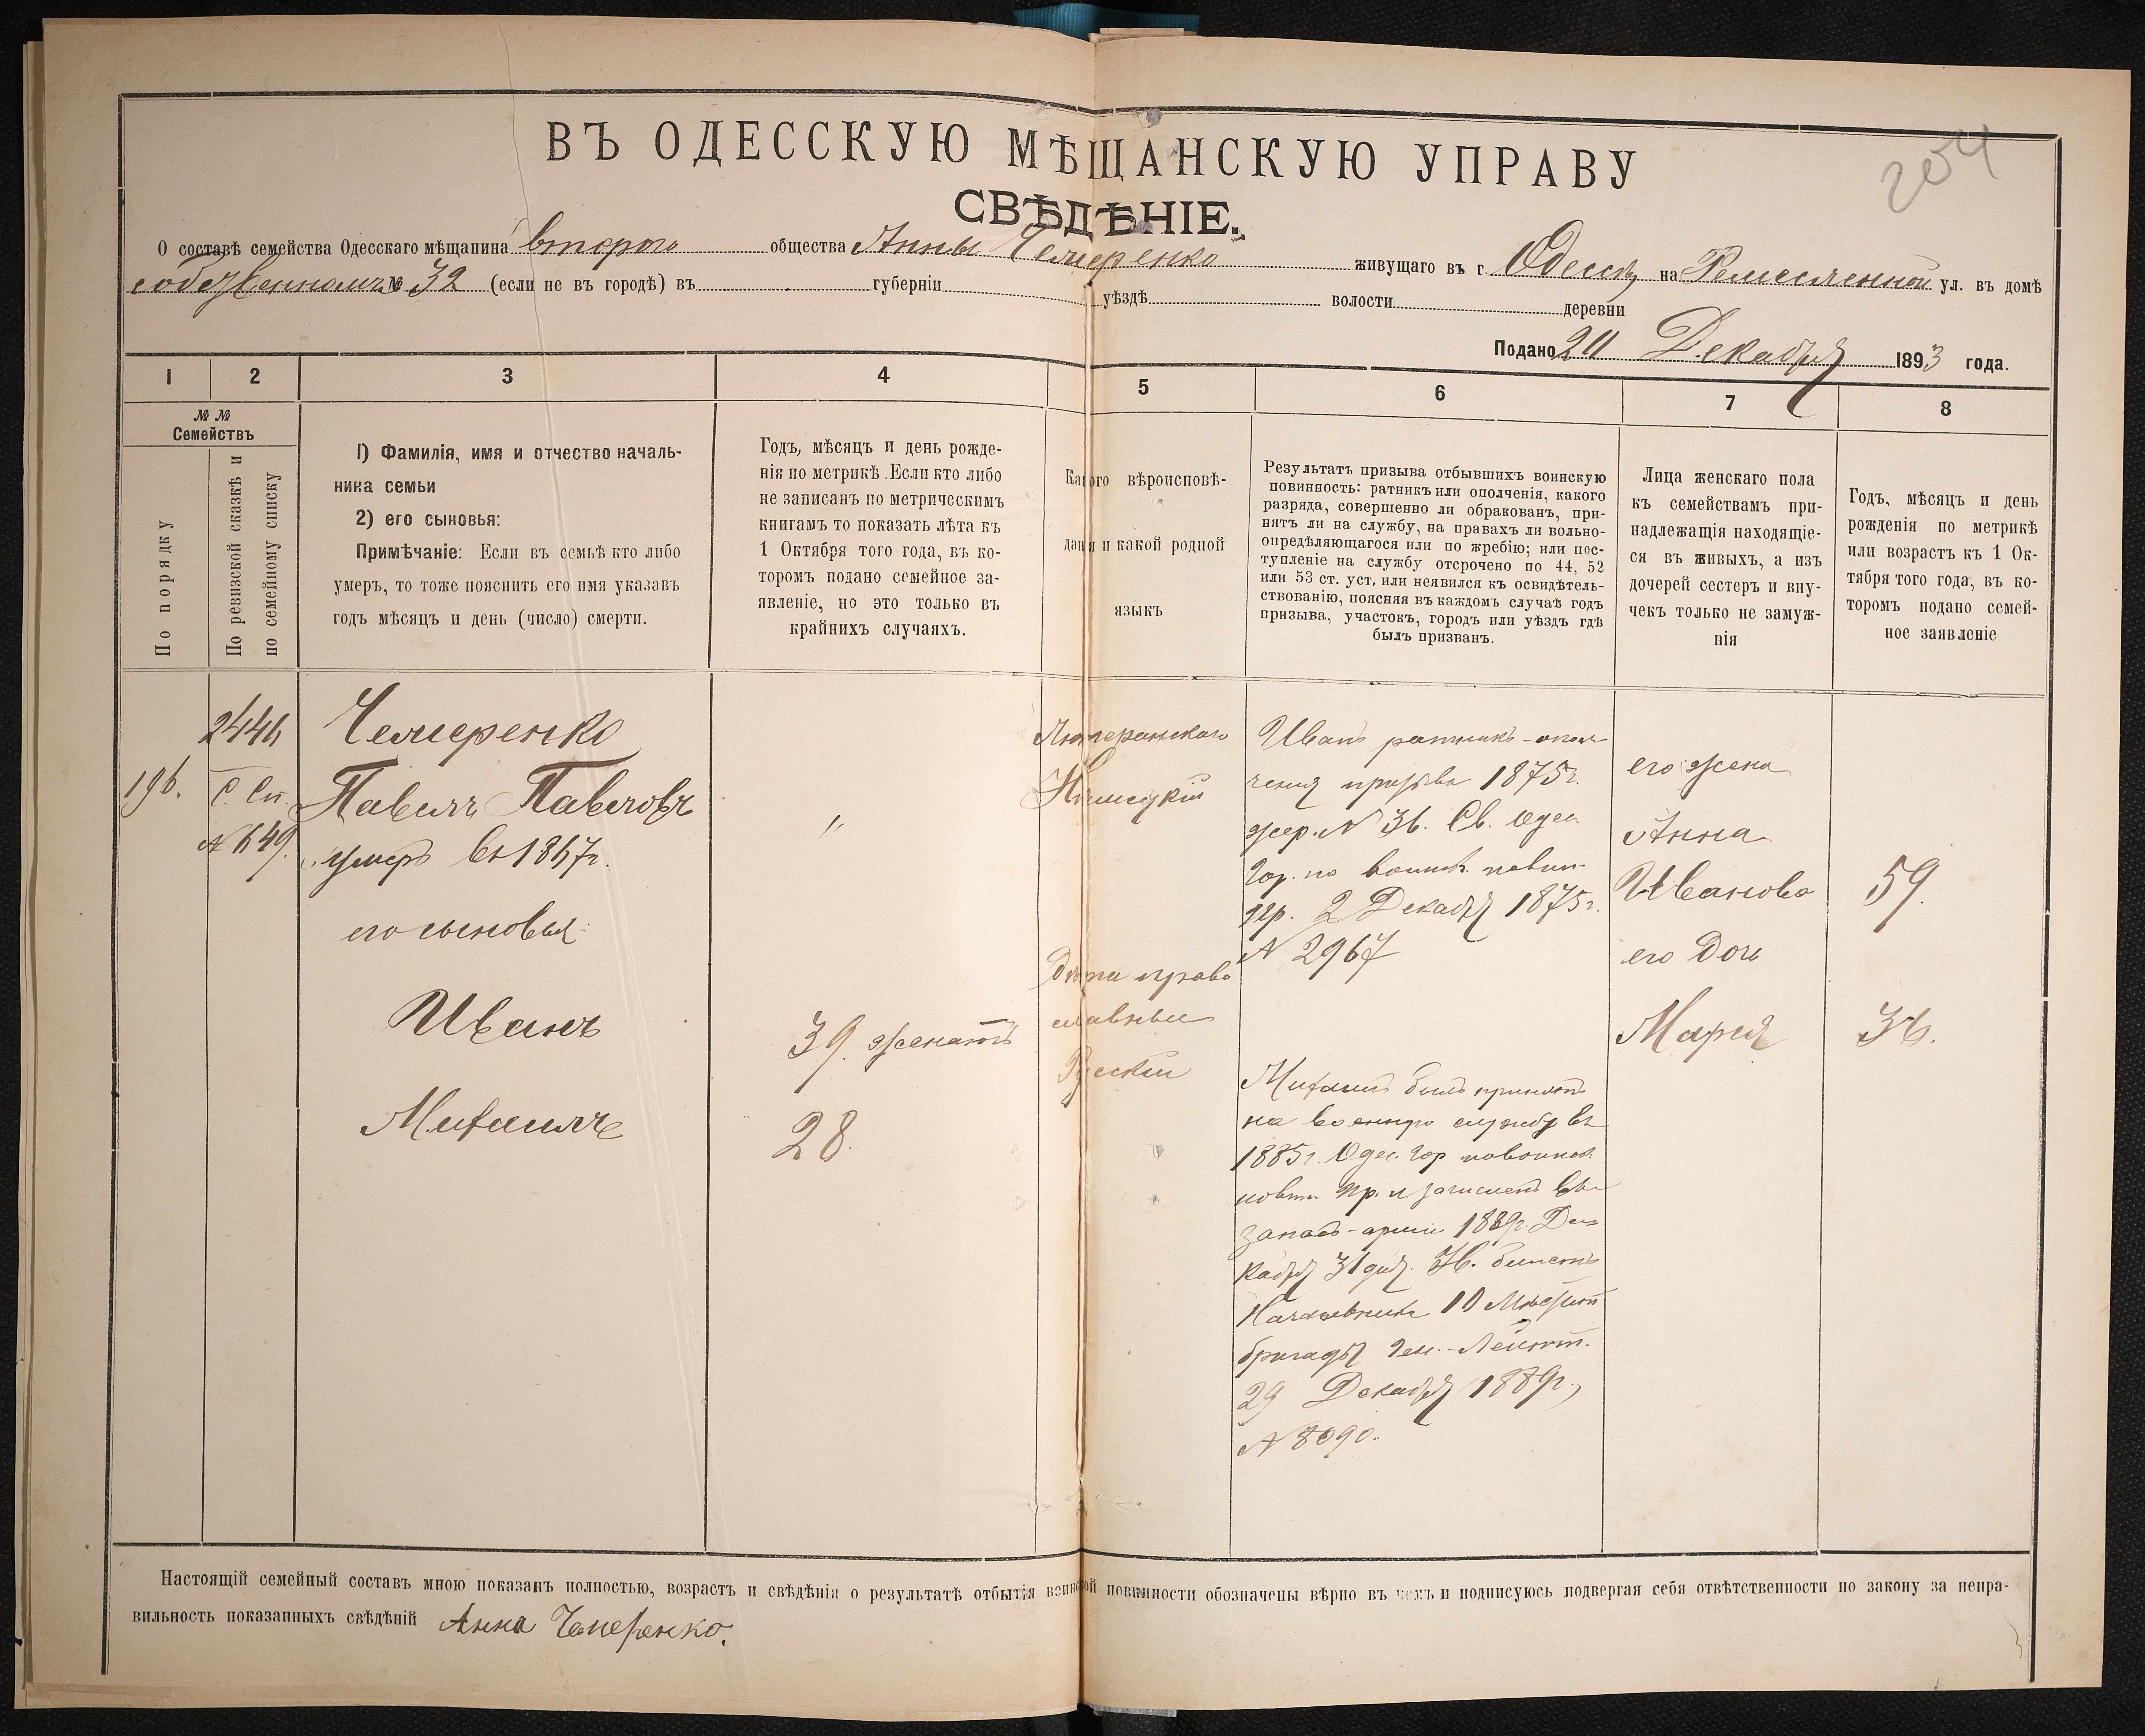 204
ВЪ ОДЕССКУЮ МѢЩАНСКУЮ УПРАВУ
СВѢДѢНІЕ.
О составѣ семейства Одесскаго мѣщанина второго общества Анны Чемеренко живущаго въ г. Одессѣ на Ремесленной ул. въ домѣ
собственномъ № 32 (если не въ городѣ) въ губерніи уѣздѣ волости деревни
Подано 20 Декабря 1893 года.
1 2 3 4 5 6 7 8
№ № Семействъ
По порядку
По ревизской сказкѣ и
по семейному списку
1) Фамилія, имя и отчество началь-
ника семьи
2) его сыновья:
Примѣчаніе: Если въ семьѣ кто либо
умеръ, то тоже пояснить его имя указавъ
годъ мѣсяцъ и день (число) смерти.
Годъ, мѣсяцъ и день рожде-
нія по метрикѣ. Если кто либо
не записанъ по метрическимъ
книгамъ то показать лѣта къ
1 Октября того года, въ ко-
торомъ подано семейное за-
явленіе, но это только въ
крайнихъ случаяхъ.
Какого вѣроисповѣ-
данія и какой родной
языкъ
Результатъ призыва отбывшихъ воинскую
повинность: ратникъ или ополченія, какого
разряда, совершенно ли обракованъ, при-
нятъ ли на службу, на правахъ ли вольно-
опредѣляющагося или по жребію; или пос-
тупленіе на службу отсрочено по 44, 52
или 53 ст. уст, или неявился къ освидѣтель-
ствованію, поясняя въ каждомъ случаѣ годъ
призыва, участокъ, городъ или уѣздъ гдѣ
былъ призванъ.
Лица женскаго пола
къ семействамъ при-
надлежащія находящіе-
ся въ живыхъ, а изъ
дочерей сестеръ и вну-
чекъ только не замуж-
нія
Годъ, мѣсяцъ и день
рожденія по метрикѣ
или возрастъ къ 1 Ок-
тября того года, въ ко-
торомъ подано семей-
ное заявленіе
196.
С. Сп.
№ 649.
Чемеренко
Павелъ Павловъ
умеръ въ 1867г.
его сыновья
Иванъ
Михаилъ
"
39. женатъ
28.
Лютеранскаго
Нѣмецкій
Дѣти право
славные
Русскій
Иванъ ратникъ-опол
ченія призыва 1875г.
жер. № 36. Св. Одес
Гор. по воинск. повин
пр. 2 Декабря 1875г.
№ 2967
Михаилъ былъ принятъ
на военную службу въ
1885г. Одес. Гор по воинск.
повин. пр. и зачисленъ въ
запасъ-арміи 1889г. Де-
кабря 31 дня. Ув. билетъ
Начальника 10 Мѣстной
бригады Ген.-Лейтт.
29 Декабря 1889г.,
№ 8090.
его жена
Анна
Иванова
его дочь
Марія
59.
36.
Настоящій семейный составъ мною показанъ полностью, возрастъ и свѣдѣнія о результатѣ отбытія воинской повинности обозначены вѣрно въ чемъ и подписуюсь подвергая себя отвѣтственности по закону за непра-
вильность показанныхъ свѣдѣній Анна Чемеренко.